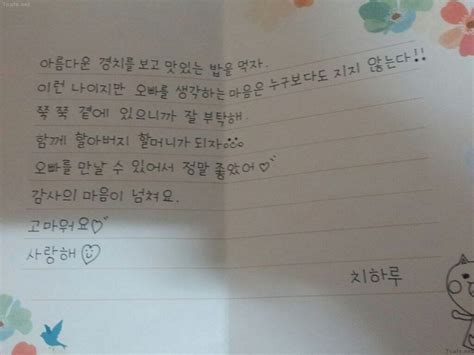 아름다운 경치를 보고 맛있는 밥을 먹자.
이런 나이지만 오빠를 생각하는 마음은 누구보다도 지지 않는다!!
쭉 쭉 곁에 있으니까 잘 부탁해.
함께 할아버지 할머니가 되자
오빠를 만날 수 있어서 정말 좋았어♡
감사의 마음이 넘쳐요.
고마워요♡
사랑해♡
치하루